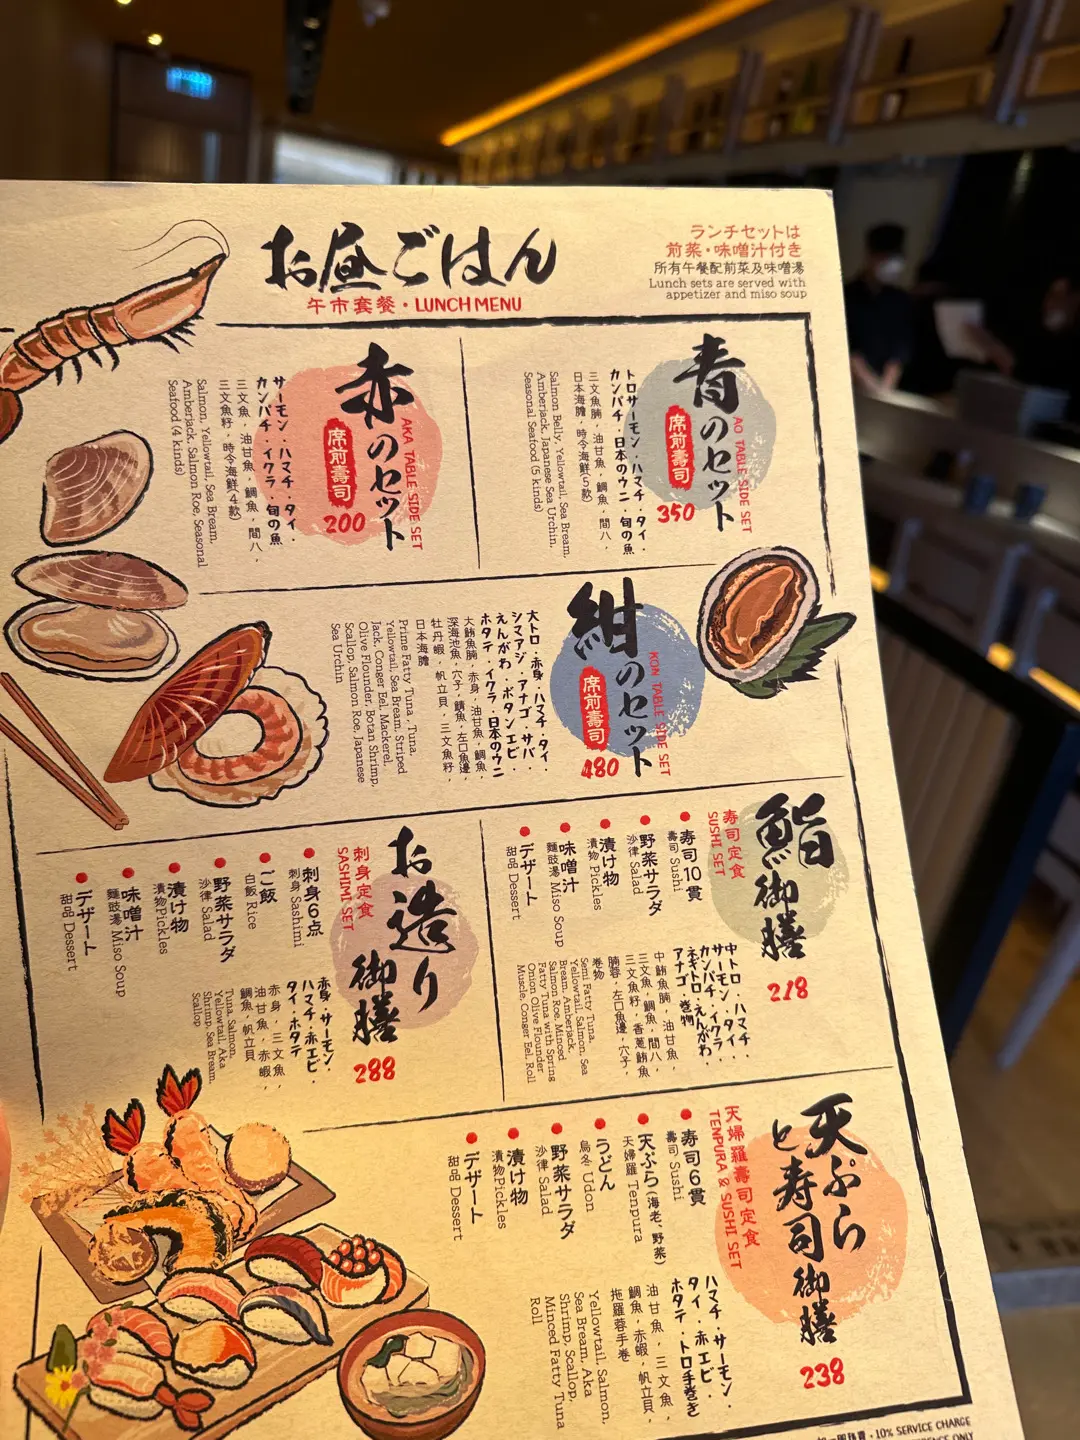 お昼ごはん
午市套餐・LUNCH MENU
ランチセットは
前菜・味噌汁付き
所有午餐配前菜及味噌湯
Lunch sets are served with
appetizer and miso soup
青のセット
AO TABLE SIDE SET
席前壽司
350
トロサーモン・ハマチ・タイ・
カンパチ・日本のウニ・旬の魚
三文魚腩，油甘魚，鯛魚，間八，
日本海膽，時令海鮮(5款)
Salmon Belly, Yellowtail, Sea Bream,
Amberjack, Japanese Sea Urchin,
Seasonal Seafood (5 kinds)
赤のセット
AKA TABLE SIDE SET
席前壽司
200
サーモン・ハマチ・タイ・
カンパチ・イクラ・旬の魚
三文魚，油甘魚，鯛魚，間八，
三文魚籽，時令海鮮(4款)
Salmon, Yellowtail, Sea Bream,
Amberjack, Salmon Roe, Seasonal
Seafood (4 kinds)
紺のセット
KON TABLE SIDE SET
席前壽司
480
大トロ・赤身・ハマチ・タイ・
シマアジ・アナゴ・サバ・
えんがわ・ボタンエビ・
ホタテ・イクラ・日本のウニ
大鮪魚腩，赤身，油甘魚，鯛魚，
深海池魚，穴子，鯖魚，左口魚邊，
牡丹蝦，帆立貝，三文魚籽，
日本海膽
Prime Fatty Tuna, Tuna,
Yellowtail, Sea Bream, Striped
Jack, Conger Eel, Mackerel,
Olive Flounder, Botan Shrimp,
Scallop, Salmon Roe, Japanese
Sea Urchin
鮨御膳
寿司定食
SUSHI SET
218
寿司10貫
壽司 Sushi
野菜サラダ
沙律 Salad
漬け物
漬物 Pickles
味噌汁
麵豉湯 Miso Soup
デザート
甜品 Dessert
中トロ・ハマチ・
サーモン・タイ・
カンパチ・イクラ・
ネギトロ・えんがわ・
アナゴ・巻物
中鮪魚腩，油甘魚，
三文魚，鯛魚，間八，
三文魚籽，香蔥鮪魚
腩蓉，左口魚邊，穴子，
卷物
Semi Fatty Tuna,
Yellowtail, Salmon, Sea
Bream, Amberjack,
Salmon Roe, Minced
Fatty Tuna with Spring
Onion, Olive Flounder
Muscle, Conger Eel, Roll
お造り御膳
刺身定食
SASHIMI SET
288
刺身6点
刺身 Sashimi
ご飯
白飯 Rice
野菜サラダ
沙律 Salad
漬け物
漬物Pickles
味噌汁
麵豉湯 Miso Soup
デザート
甜品 Dessert
赤身・サーモン・
ハマチ・赤エビ・
タイ・ホタテ
赤身，三文魚，
油甘魚，赤蝦，
鯛魚，帆立貝
Tuna, Salmon,
Yellowtail, Aka
Shrimp, Sea Bream,
Scallop
天ぷらと寿司御膳
天婦羅壽司定食
TENPURA & SUSHI SET
238
寿司6貫
壽司 Sushi
天ぷら(海老、野菜)
天婦羅 Tenpura
うどん
烏冬 Udon
野菜サラダ
沙律 Salad
漬け物
漬物Pickles
デザート
甜品 Dessert
ハマチ・サーモン・
タイ・赤エビ・
ホタテ・トロ手巻き
油甘魚，三文魚，
鯛魚，赤蝦，帆立貝，
拖羅蓉手卷
Yellowtail, Salmon,
Sea Bream, Aka
Shrimp, Scallop,
Minced Fatty Tuna
Roll
10% SERVICE CHARGE
ONLY